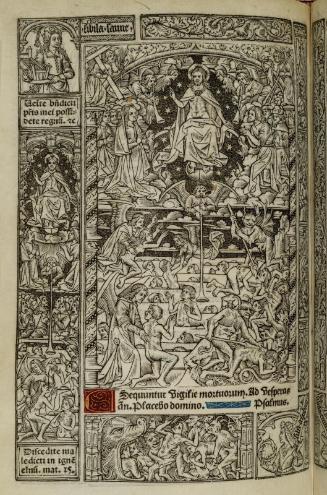 Sibila
Uenite bñdicti
pr̃is mei possi-
dete regnũ. ⁊c.
Discedite ma
ledicti in ignẽ
eternũ. mat. 25.
Sequuntur Uigilie mortuorum. Ad vesperas
añ. Placebo domino. Psalmus.